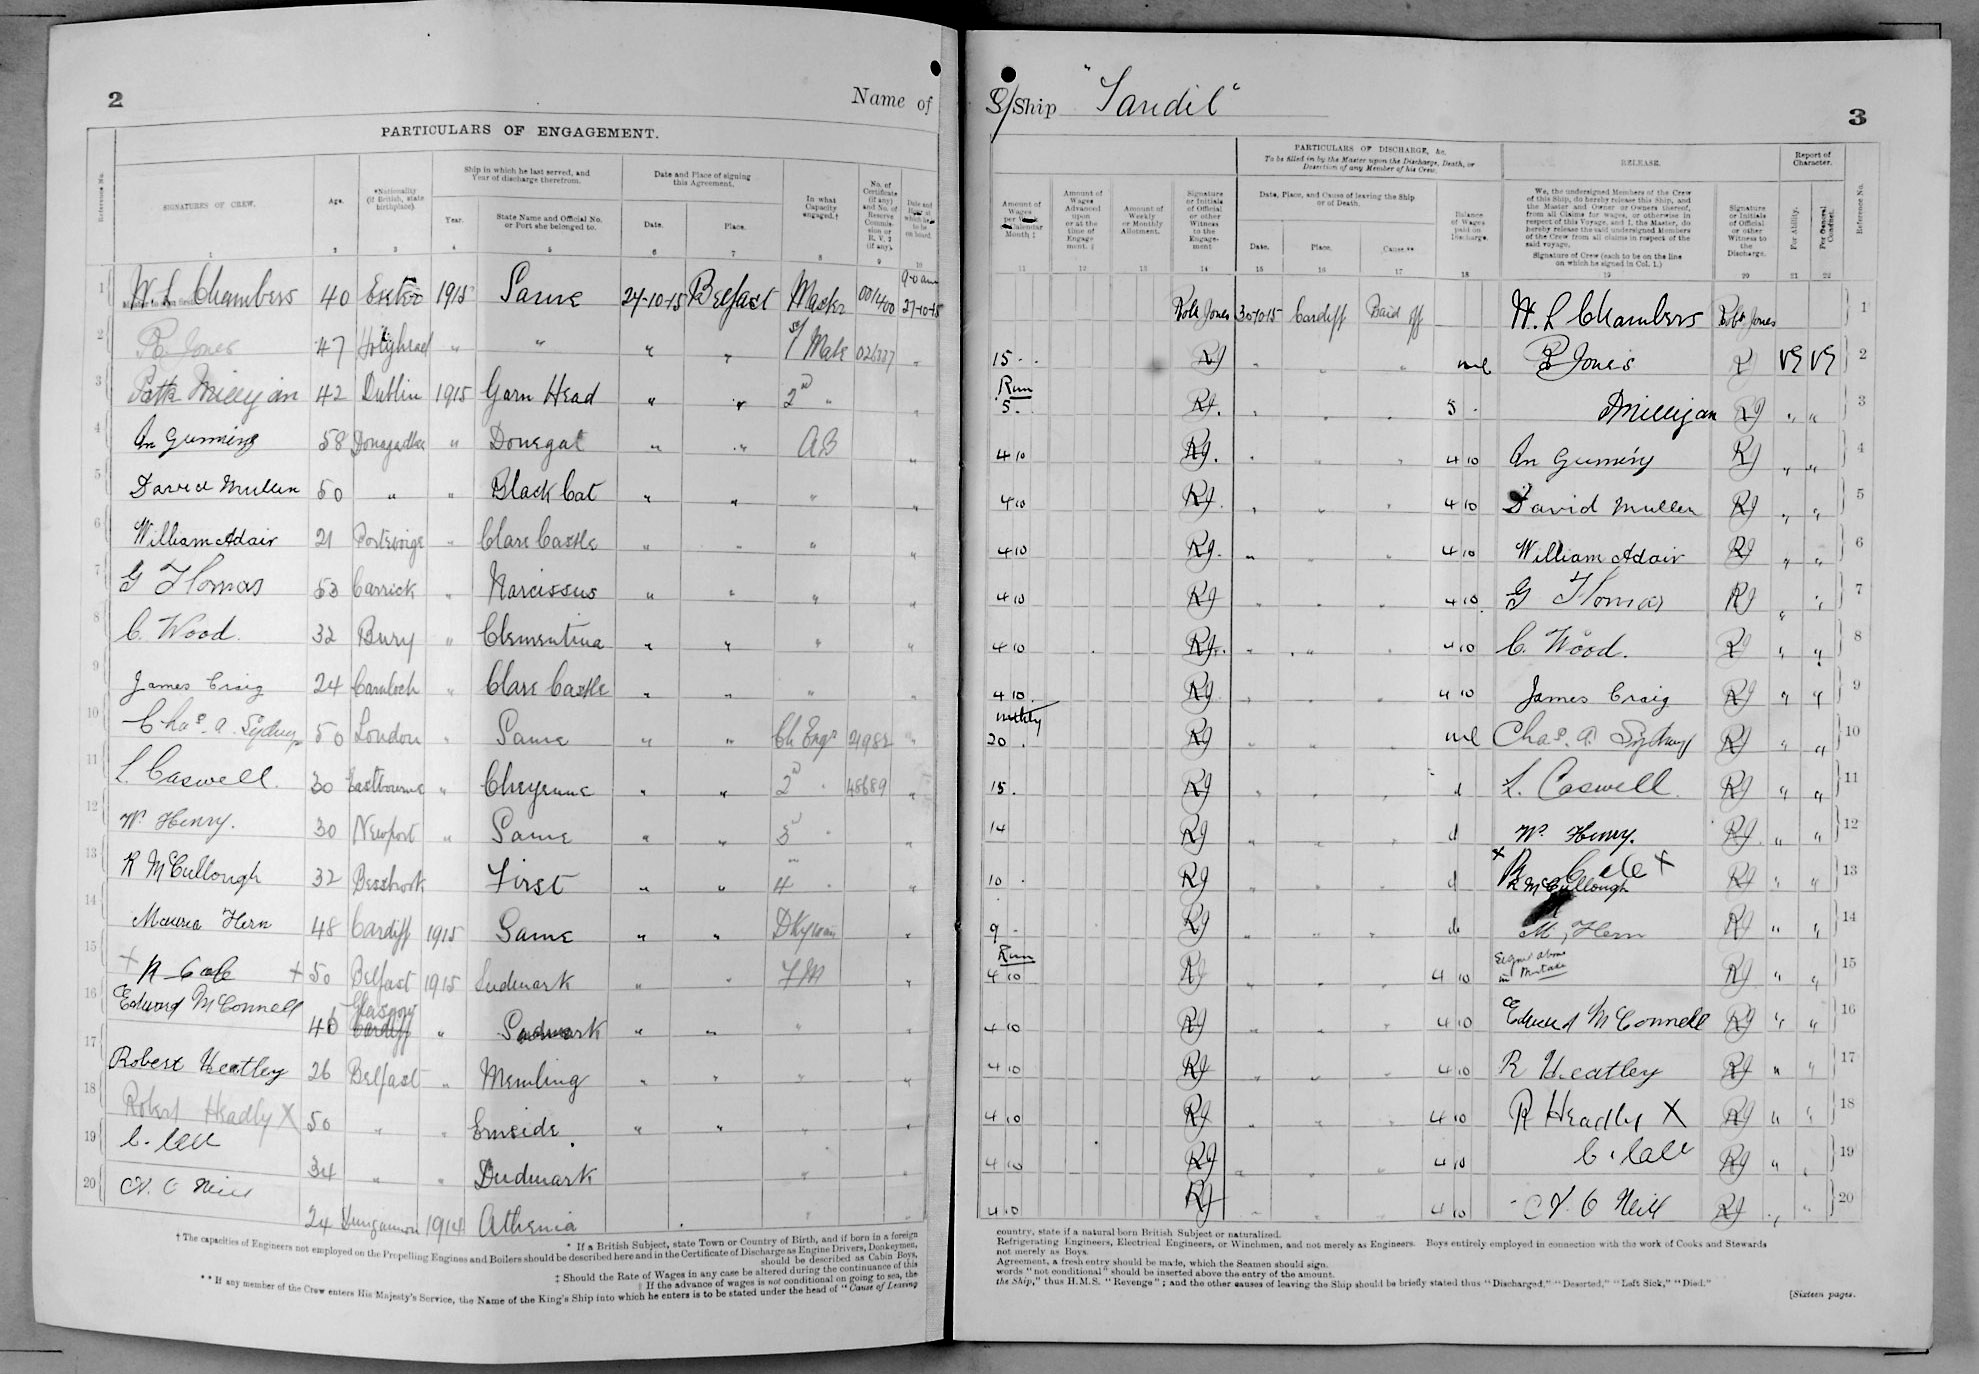 2
Name of
PARTICULARS OF ENGAGEMENT.
Reference No.
SIGNATURES OF CREW.
Age.
*Nationality (if British, state birthplace).
Ship in which he last served, and Year of discharge therefrom.
Year.
State Name and Official No. or Port she belonged to.
Date and Place of signing this Agreement.
Date.
Place.
In what Capacity engaged.†
No. of Certificate (if any) and No. of Reserve Commission or R.V. 2 (if any).
Date and Hour at which he is to be on board.
1 2 3 4 5 6 7 8 9 10
1 W. L Chambers 40 Exeter 1915 Same 27-10-15 Belfast Master 001400 9-0 am 27-10-15
2 R. Jones 47 Holyhead " " " " 1st/ Mate "
3 Patk Milligan 42 Dublin 1915 Garn Head " " 2nd " "
4 58 Donaghadee " Donegal " " AB "
5 David Mullen 50 " " Black Cat " " " "
6 William Adair 21 " Clare Castle " " " "
7 G Thomas 53 Carrick " Narcissus " " " "
8 C. Wood. 32 Bury " Clementina " " " "
9 James Craig 24 Carnloch " Clare Castle " " " "
10 Chas. A. Sydney 50 London " Same " " Ch Engr 21982 "
11 L. Caswell. 30 Eastbourne " Cheyenne " " 2nd " 48689 "
12 W. Henry. 30 Newport " Same " " 3 " "
13 R McCullough 32 Bessbrook First " " 4 " "
14 Hern 48 Cardiff 1915 Same " " Dkyman "
15 + + 50 Belfast 1915 " " FM "
16 Edward McConnell 40 Glasgow Cardiff " " " " "
17 Robert Heatley 26 Belfast " Memling " " " "
18 Robert Headly X 50 " " " " " "
19 C. Call 34 " " " "
20 O Neill 24 Dungannon 1914 Athenia " "
* If a British Subject, state Town or Country of Birth, and if born in a foreign
† The capacities of Engineers not employed on the Propelling Engines and Boilers should be described here and in the Certificate of Discharge as Engine Drivers, Donkeymen,
should be described as Cabin Boys,
‡ Should the Rate of Wages in any case be altered during the continuance of this
‖ If the advance of wages is not conditional on going to sea, the
** If any member of the Crew enters His Majesty's Service, the Name of the King's Ship into which he enters is to be stated under the head of "Cause of Leaving
S/Ship "Tandil"
3
Amount of Wages per Week or Calendar Month ‡
Amount of Wages Advanced upon or at the time of Engagement. ‖
Amount of Weekly or Monthly Allotment.
Signature or Initials of Official or other Witness to the Engagement
PARTICULARS OF DISCHARGE, &c.
To be filled in by the Master upon the Discharge, Death, or Desertion of any Member of his Crew.
Date, Place, and Cause of leaving the Ship or of Death.
Date.
Place.
Cause.**
Balance of Wages paid on Discharge.
RELEASE.
We, the undersigned Members of the Crew of this Ship, do hereby release this Ship, and the Master and Owner or Owners thereof, from all Claims for wages, or otherwise in respect of this Voyage, and I, the Master, do hereby release the said undersigned Members of the Crew from all claims in respect of the said voyage.
Signature of Crew (each to be on the line on which he signed in Col. 1.)
Signature or Initials of Official or other Witness to the Discharge.
Report of Character.
For Ability.
For General Conduct.
Reference No.
11 12 13 14 15 16 17 18 19 20 21 22
Robt Jones 30-10-15 Cardiff Paid off W. L Chambers Robt Jones 1
15 - - RJ " " " nil R Jones R VG VG 2
Run
5 - RJ " " " 5 - Milligan RJ " " 3
4 10 RJ " " " 4 10 RJ " " 4
4 10 RJ " " " 4 10 David Mullen RJ " " 5
4 10 RJ " " 4 10 William Adair RJ " " 6
4 10 RJ " " " 4 10 G Thomas RJ " " 7
4 10 RJ " " " 4 10 C. Wood. RJ " " 8
4 10 RJ " " " 4 10 James Craig RJ " " 9
mthly
20 - RJ " " " nil Chas. A. Sydney RJ " " 10
15 - RJ " " " L. Caswell. RJ " " 11
14 RJ " " " W. Henry. RJ " " 12
10 - RJ " " " R McCullough RJ " " 13
9 - RJ " " " M, Hern RJ " " 14
Run
4 10 RJ " " " 4 10 Signed above in Mistake RJ " " 15
4 10 RJ " " " 4 10 Edward McConnell RJ " " 16
4 10 RJ " " " 4 10 R Heatley RJ " " 17
4 10 RJ " " " 4 10 R Headly X RJ " " 18
4 10 RJ " " " 4 10 C. Call RJ " " 19
4 10 RJ " " " 4 10 O Neill RJ " " 20
country, state if a natural born British Subject or naturalized.
Refrigerating Engineers, Electrical Engineers, or Winchmen, and not merely as Engineers. Boys entirely employed in connection with the work of Cooks and Stewards
not merely as Boys.
Agreement, a fresh entry should be made, which the Seamen should sign.
words "not conditional" should be inserted above the entry of the amount.
the Ship," thus H.M.S. "Revenge"; and the other causes of leaving the Ship should be briefly stated thus "Discharged," "Deserted," "Left Sick," "Died."
[Sixteen pages.